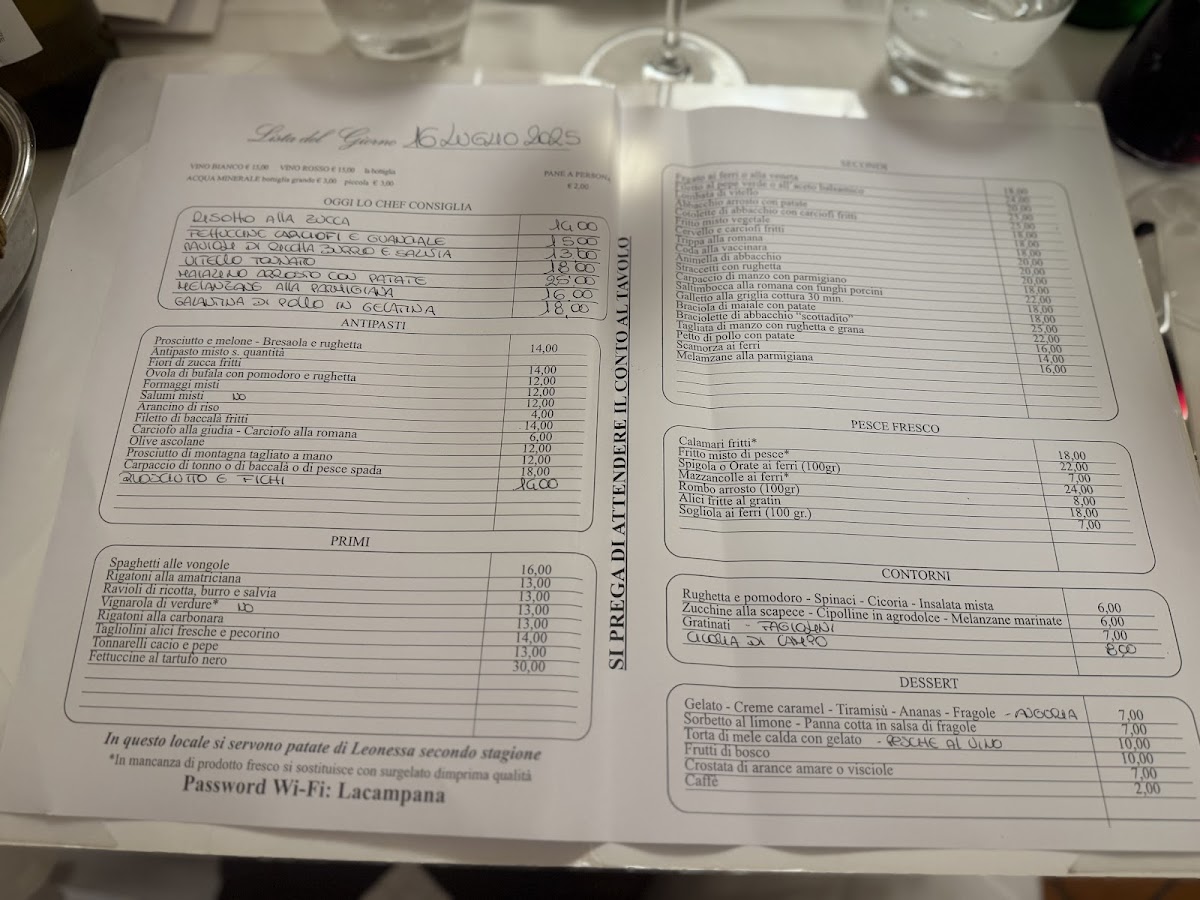 Lista del Giorno 16 LUGLIO 2025
VINO BIANCO € 15,00 VINO ROSSO € 15,00 la bottiglia
ACQUA MINERALE bottiglia grande € 3,00 piccola € 3,00
PANE A PERSONA
€ 2,00
OGGI LO CHEF CONSIGLIA
RISOTTO ALLA ZUCCA 14,00
FETTUCCINE CARCIOFI E GUANCIALE 15,00
RAVIOLI DI RICOTTA BURRO E SALVIA 13,00
VITELLO TONNATO 18,00
MAIALINO ARROSTO CON PATATE 25,00
MELANZANE ALLA PARMIGIANA 16,00
GALANTINA DI POLLO IN GELATINA 18,00
ANTIPASTI
Prosciutto e melone - Bresaola e rughetta 14,00
Antipasto misto s. quantità
Fiori di zucca fritti 14,00
Ovola di bufala con pomodoro e rughetta 12,00
Formaggi misti 12,00
Salumi misti NO 12,00
Arancino di riso 4,00
Filetto di baccalà fritti 14,00
Carciofo alla giudia - Carciofo alla romana 6,00
Olive ascolane 12,00
Prosciutto di montagna tagliato a mano 12,00
Carpaccio di tonno o di baccalà o di pesce spada 18,00
PROSCIUTTO E FICHI 14,00
PRIMI
Spaghetti alle vongole 16,00
Rigatoni alla amatriciana 13,00
Ravioli di ricotta, burro e salvia 13,00
Vignarola di verdure* NO 13,00
Rigatoni alla carbonara 13,00
Tagliolini alici fresche e pecorino 14,00
Tonnarelli cacio e pepe 13,00
Fettuccine al tartufo nero 30,00
In questo locale si servono patate di Leonessa secondo stagione
*In mancanza di prodotto fresco si sostituisce con surgelato dimprima qualità
Password Wi-Fi: Lacampana
SI PREGA DI ATTENDERE IL CONTO AL TAVOLO
SECONDI
Fegato ai ferri o alla veneta 18,00
Filetto al pepe verde o all'aceto balsamico 24,00
Lombata di vitello 20,00
Abbacchio arrosto con patate 25,00
Cotolette di abbacchio con carciofi fritti 25,00
Fritto misto vegetale 18,00
Cervello e carciofi fritti 18,00
Trippa alla romana 18,00
Coda alla vaccinara 20,00
Animella di abbacchio 20,00
Straccetti con rughetta 20,00
Carpaccio di manzo con parmigiano 18,00
Saltimbocca alla romana con funghi porcini 22,00
Galletto alla griglia cottura 30 min. 18,00
Braciola di maiale con patate 18,00
Braciolette di abbacchio "scottadito" 25,00
Tagliata di manzo con rughetta e grana 22,00
Petto di pollo con patate 16,00
Scamorza ai ferri 14,00
Melamzane alla parmigiana 16,00
PESCE FRESCO
Calamari fritti* 18,00
Fritto misto di pesce* 22,00
Spigola o Orate ai ferri (100gr) 7,00
Mazzancolle ai ferri* 24,00
Rombo arrosto (100gr) 8,00
Alici fritte al gratin 18,00
Sogliola ai ferri (100 gr.) 7,00
CONTORNI
Rughetta e pomodoro - Spinaci - Cicoria - Insalata mista 6,00
Zucchine alla scapece - Cipolline in agrodolce - Melanzane marinate 6,00
Gratinati - FAGIOLINI 7,00
CICORIA DI CAMPO 8,00
DESSERT
Gelato - Creme caramel - Tiramisù - Ananas - Fragole - ANGURIA 7,00
Sorbetto al limone - Panna cotta in salsa di fragole 7,00
Torta di mele calda con gelato - PESCHE AL VINO 10,00
Frutti di bosco 10,00
Crostata di arance amare o visciole 7,00
Caffè 2,00